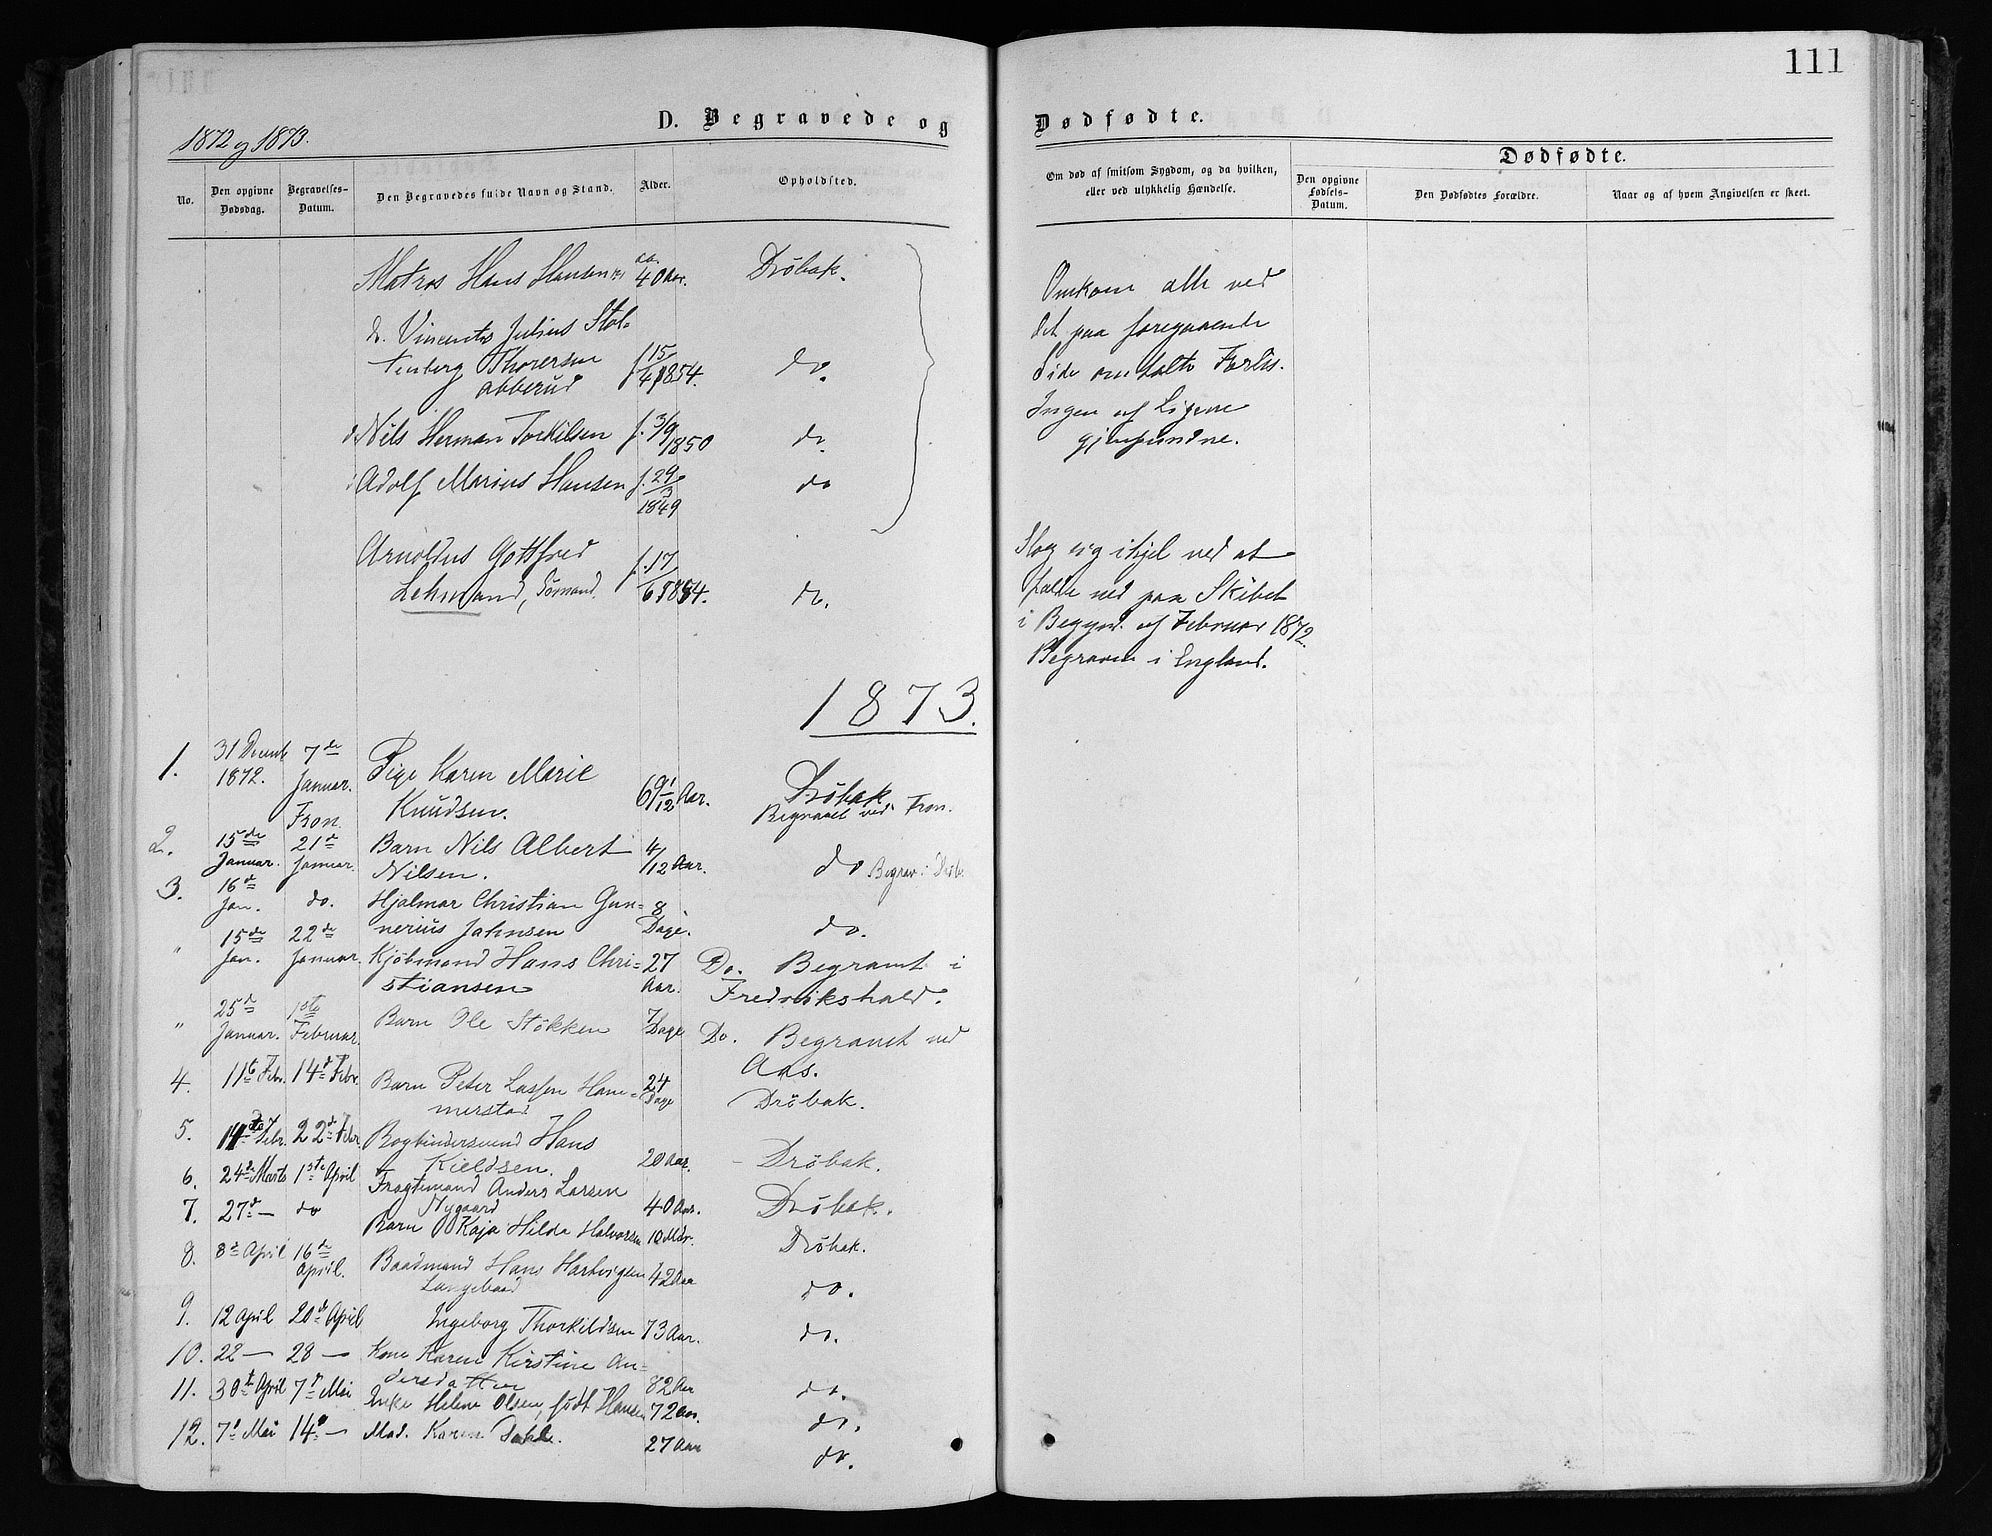 111
1872 og 1873.
D. Begravede og
Dødfødte.
No.
Den opgivne
Dødsdag.
Begravelses-
Datum.
Den Begravedes fulde Navn og Stand.
Alder.
Opholdsted.
Om død af smitsom Sygdom, og da hvilken,
eller ved ulykkelig Hændelse.
Dødfødte.
Den opgivne
Fødsels-
Datum.
Den Dødfødtes Forældre.
Naar og af hvem Angivelsen er skeet.
Matros Hans Hansen 40 Aar. Drøbak.
Vincents Julius Stol-
tenberg Thorersen f. 15/4 1854. do.
abberud
Nils Herman Torkilsen f. 3/9 1850 do.
Adolf Marius Hansen f. 29/ 1849 do
Omkom alle ved
det paa foregaaende
Side omtalte Forlis.
Ingen af Ligene
gjenfundne.
Arnoldus Gottfred f. 17/6
Lehmand, Sømand. do.
Slog sig ihjel ved at
falde ned paa Skibet
i Beggnd. af Februar 1872.
Begraven i England.
1873.
1. 31 Decemb 7de Pige Karen Marie
1872. Januar. Knudsen. 69 1/12 Aar. Drøbak
Fron. Begravet ved Fron.
2. 15de 21d Barn Nils Albert 4/12 Aar. do Begrav. i Drøb.
Januar. Januar. Nilsen.
3. 16d do. Hjalmar Christian Gun- 8
Jan. nerius Jahnsen Dage. do.
" 15de 22de Kjøbmand Hans Chri- 27 Do. Begravet i
Jan. Januar. stiansen Aar. Fredrikshald.
" 25d 1ste Barn Ole Stökken 7 Dage Do. Begravet ved
Januar. Februar. Aas.
4. 11te Febr. 14d Febr. Barn Peter Lassen Ham- 24
merstad Dage Drøbak.
5. Febr. 22d Febr Bogbindersvend Hans
Kieldsen. 20 Aar. - Drøbak.
6. 24de Marts 1ste April Fragtemand Anders Larsen
Nygaard 40 Aar. Drøbak.
7. 27d — do Barn Kaja Hilda Halvorsen 10 Mdr. Drøbak.
8. 8d April 16de Baadsmand Hans Hartvigsen 42 Aar
April. Langebaad do.
9. 12 April 20d April Ingeborg Thorkildsen 73 Aar. do.
10. 22 — 28 — Kone Karen Kirstine An-
dersdatter 82 Aar do.
11. 30t April 7d Mai Enke Helene Olsen, født Hansen 72 Aar. do.
12. 7d Mai 14d — Mad. Karen Dahl. 27 Aar do.